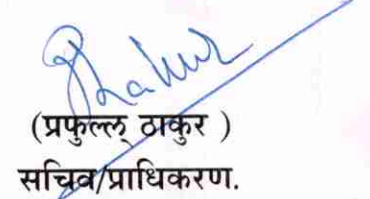 Thakur
(प्रफुल्ल् ठाकुर )
सचिव/प्राधिकरण.